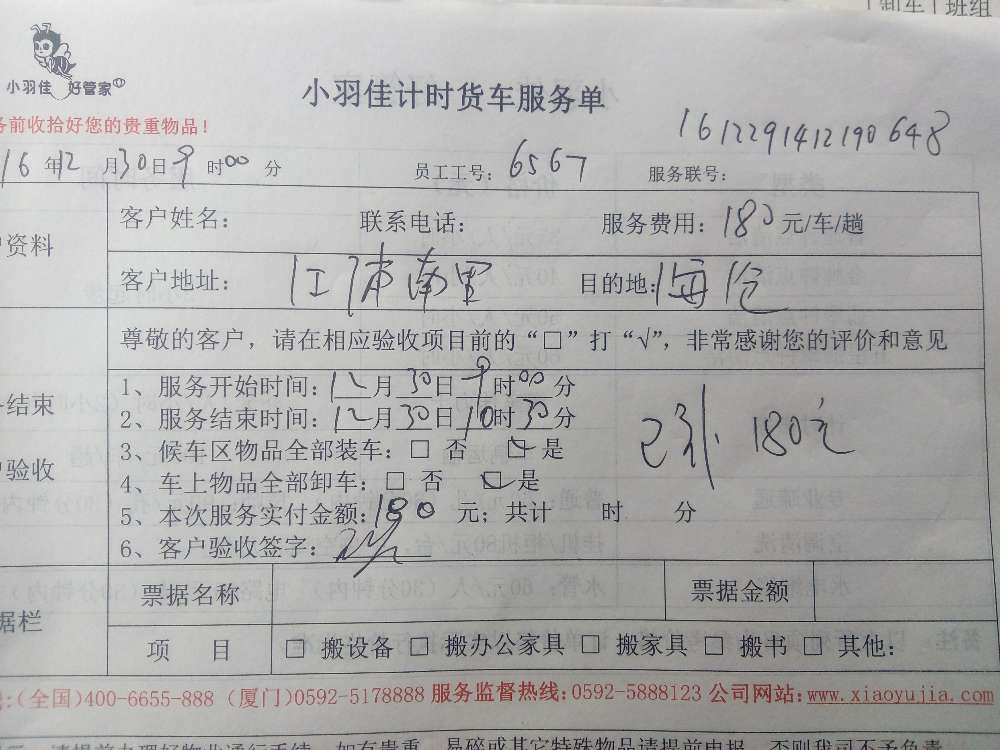 制车 班组
小羽佳 好管家
小羽佳计时货车服务单
务前收拾好您的贵重物品！
161229141219 0648
16年12月30日9时00分 员工工号：6567 服务联号：
资料
客户姓名： 联系电话： 服务费用：180元/车/趟
客户地址：江浦南里 目的地：海仓
尊敬的客户，请在相应验收项目前的“□”打“√”，非常感谢您的评价和意见
结束
验收
1、服务开始时间：12月30日9时00分
2、服务结束时间：12月30日10时30分
3、候车区物品全部装车：□ 否 □ 是
4、车上物品全部卸车：□ 否 □ 是
5、本次服务实付金额：180 元；共计 时 分
6、客户验收签字：
180元
据栏
票据名称 票据金额
项 目 □ 搬设备 □ 搬办公家具 □ 搬家具 □ 搬书 □ 其他：
:(全国)400-6655-888 (厦门)0592-5178888 服务监督热线:0592-5888123 公司网站:www.xiaoyujia.com